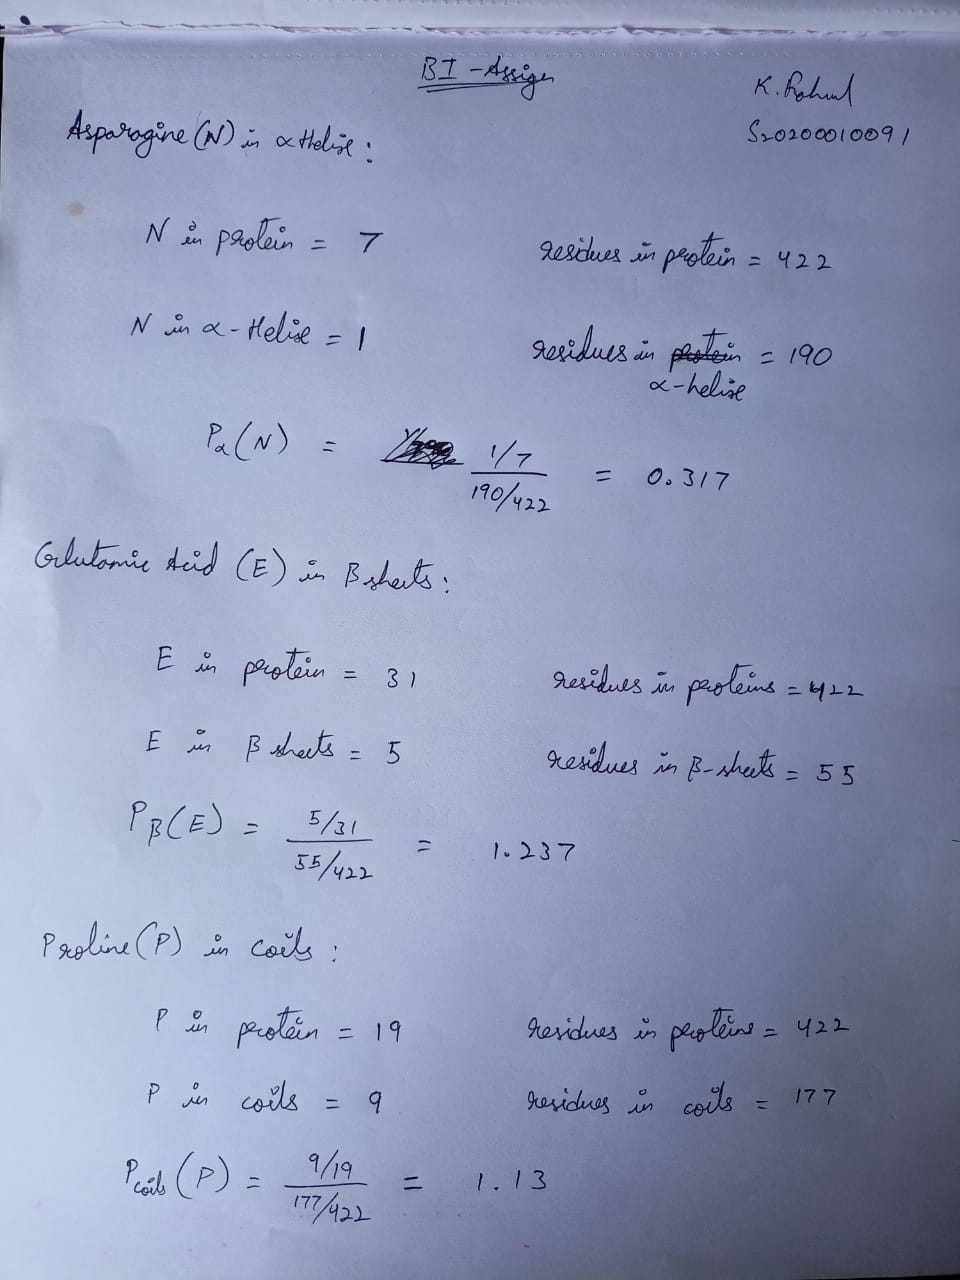 BI - Assign
K. Rahul
S20200010091
Asparagine (N) in α Helix :
N in protein = 7
residues in protein = 422
N in α - Helix = 1
residues in protein = 190
α-helix
Pα(N) = 1/7 / 190/422 = 0.317
Glutamic Acid (E) in B sheets :
E in protein = 31
residues in proteins = 422
E in β sheets = 5
residues in β-sheets = 55
Pβ(E) = 5/31 / 55/422 = 1.237
Proline (P) in coils :
P in protein = 19
residues in proteins = 422
P in coils = 9
residues in coils = 177
Pcoils (P) = 9/19 / 177/422 = 1.13